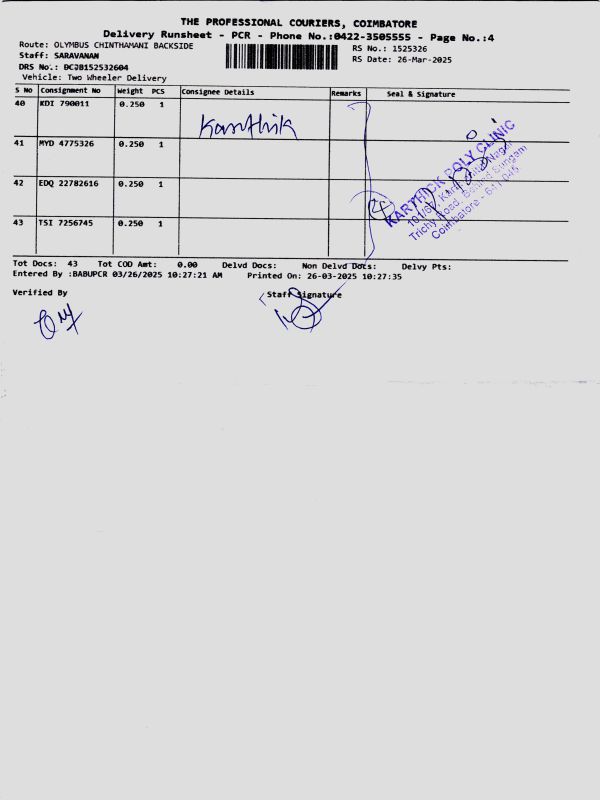 THE PROFESSIONAL COURIERS, COIMBATORE
Delivery Runsheet - PCR - Phone No.:0422-3505555 - Page No.:4
Route: OLYMBUS CHINTHAMANI BACKSIDE
RS No.: 1525326
Staff: SARAVANAN
RS Date: 26-Mar-2025
DRS No.: DCJB152532604
Vehicle: Two Wheeler Delivery
S No Consignment No Weight PCS Consignee Details Remarks Seal & Signature
40 KDI 790011 0.250 1
Karthik
41 MYD 4775326 0.250 1
42 EDQ 22782616 0.250 1
43 TSI 7256745 0.250 1
4
KARTHICK POLY CLINIC
Trichy Road, Behind Sungam
Coimbatore - 641 045.
Tot Docs: 43 Tot COD Amt: 0.00 Delvd Docs: Non Delvd Docs: Delvy Pts:
Entered By :BABUPCR 03/26/2025 10:27:21 AM Printed On: 26-03-2025 10:27:35
Verified By
Staff Signature